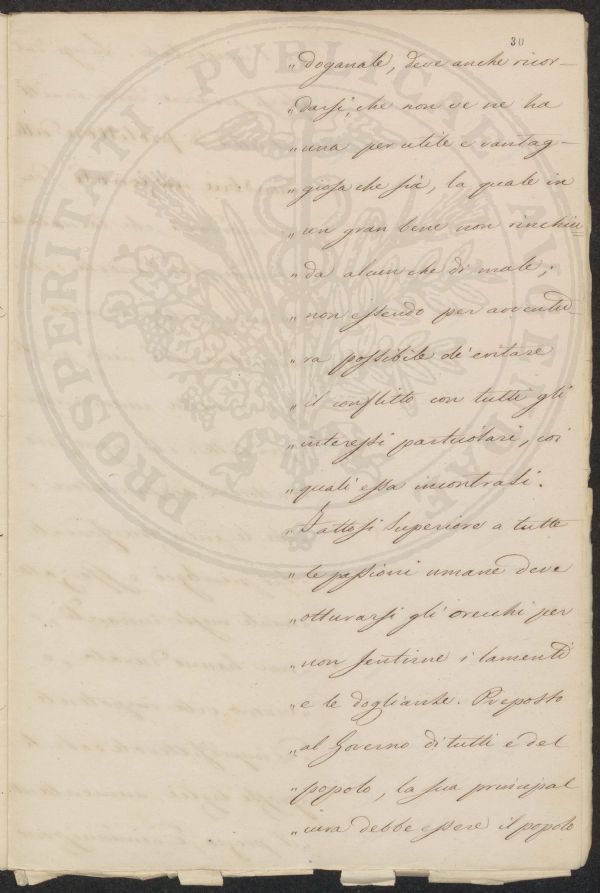 30
„ doganale, deve anche ricor—
„ darsi, che non ve ne ha
„ una per utile e vantag—
„ giosa che sia, la quale in
„ un gran bene non rinchiu=
„ da alcun che di male;
„ non essendo per avventu=
„ ra possibile di evitare
„ il conflitto con tutti gli
„ interessi particolari, coi
„ quali essa incontrasi.
„ Fattosi superiore a tutte
„ le passioni umane deve
„ otturarsi gli orecchi per
„ non sentirne i lamenti
„ e le doglianze. Preposto
„ al Governo di tutti e del
„ popolo, la sua principal
„ cura debbe essere il popolo
PROSPERITATI PVBLICAE AVGENDAE